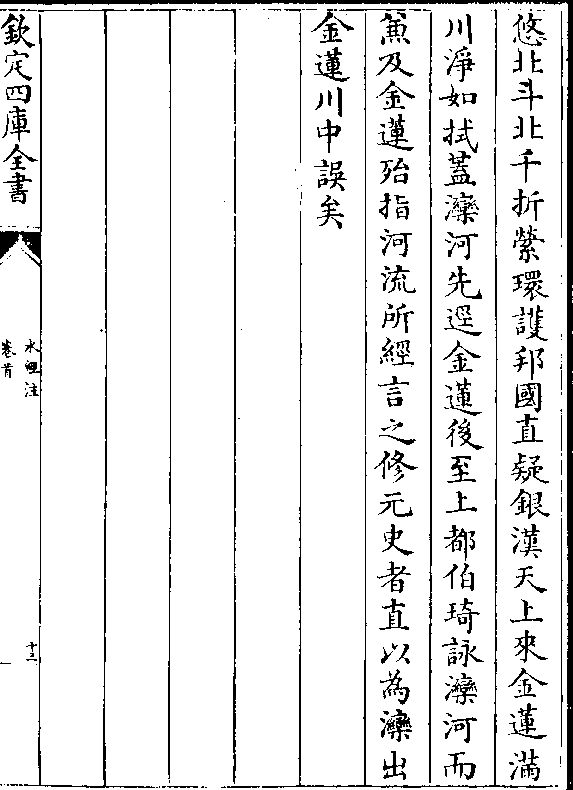 悠北斗北千折縈環護邦國直疑銀漢天上來金蓮滿
川淨如拭蓋灤河先逕金蓮後至上都伯琦詠灤河而
兼及金蓮殆指河流所經言之修元史者直以為灤出
金蓮川中誤矣
欽定四庫全書
水經注
卷首
十三